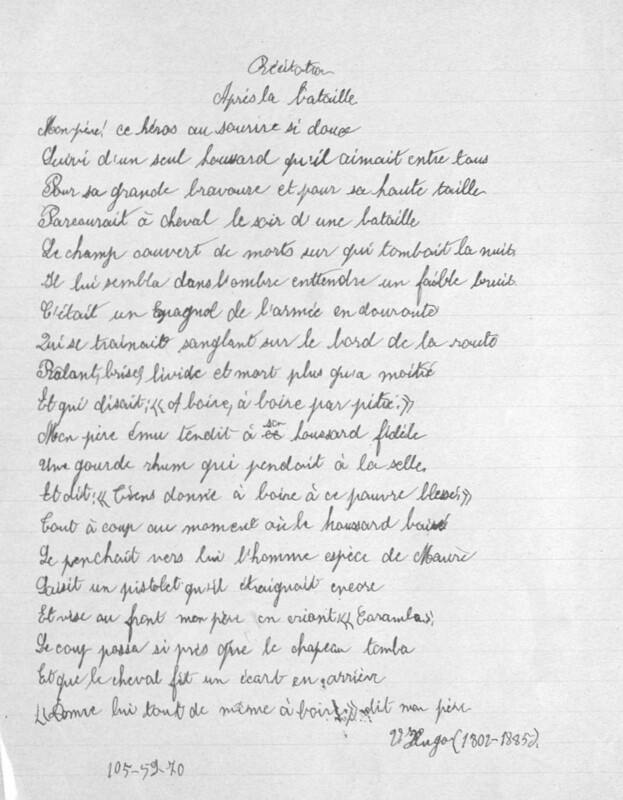 Récitation
Après la bataille
Mon père! ce héros au sourire si doux
Suivi d'un seul houssard qu'il aimait entre tous
Pour sa grande bravoure et pour sa haute taille
Parcourait à cheval le soir d'une bataille
Le champ couvert de morts sur qui tombait la nuit.
Il lui sembla dans l'ombre enttendre un faible bruit.
C'était un Epagnol de l'armée en douroute
Qui se trainait sanglant sur le bord de la route
Ralant, brisé, livide et mort plus qu'a moitié
Et qui disait: « A boire, à boire par pitié. »
Mon père ému tendit à son houssard fidèle
Une gourde rhum qui pendait à la selle.
Et dit: « Tiens donne à boire à ce pauvre blessé. »
Tout à coup au moment où le houssard baissé
Se penchait vers lui l'homme espèce de Maure
Saisit un pistolet qu'il étraignait encore
Et vise au front mon père en criant « Caramba »,
Le coup passa si près que le chapeau tomba
Et que le cheval fit un écart en arrière
« Donne lui tout de même à boire » dit mon père
V. Hugo (1802-1885).
105-59-70